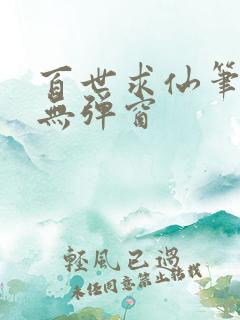 百世求仙筆
無彈窗
輕風已過
未经同意禁止转载